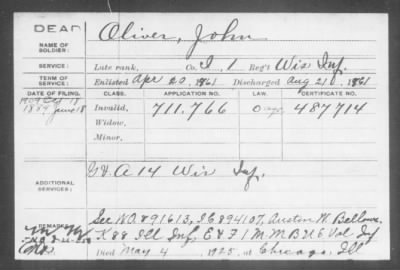 DEAD
NAME OF SOLDIER:
Oliver, John
SERVICE:
Late rank, Co. I, 1 Reg't Wis Inf.
TERM OF SERVICE:
Enlisted Apr 20, 1861 Discharged Aug 21, 1861
DATE OF FILING. CLASS. APPLICATION NO. LAW. CERTIFICATE NO.
1889 June 18 Invalid, 711.766 487714
Widow,
Minor,
ADDITIONAL SERVICES:
A 14 Wis Inf.
REMARKS:
See NO. 891613, I C 894107, Austin W. Bellows
K 88 Ill Inf, E & F 1 M M B U S Vol Inf
Died May 4, 1925, at Chicago, Ill